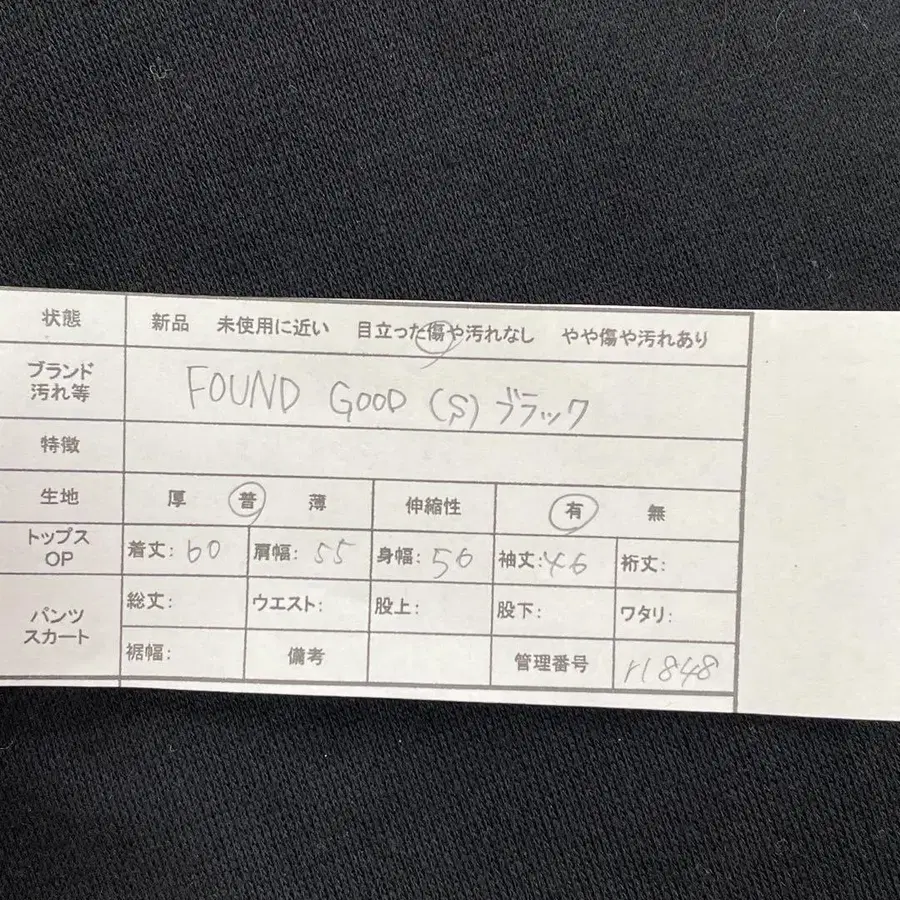 状態 新品 未使用に近い 目立った傷や汚れなし やや傷や汚れあり
ブランド
汚れ等 FOUND GOOD (S) ブラック
特徴
生地 厚 普 薄 伸縮性 有 無
トップス
OP 着丈: 60 肩幅: 55 身幅: 56 袖丈: 46 裄丈:
パンツ
スカート 総丈: ウエスト: 股上: 股下: ワタリ:
裾幅: 備考 管理番号 r1848